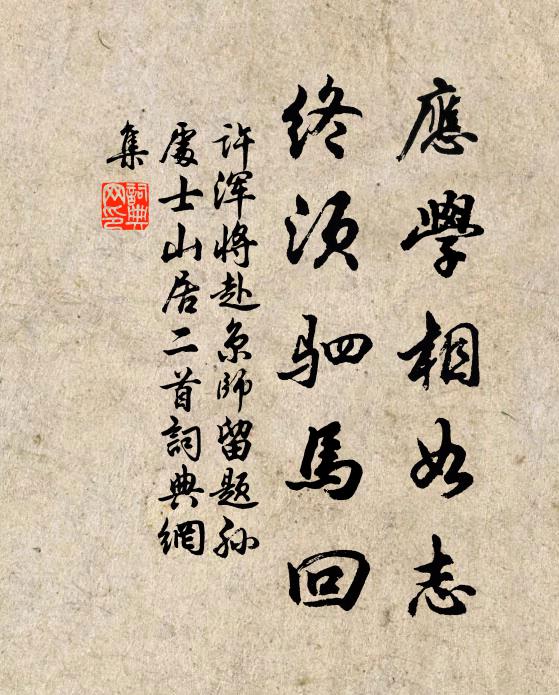 應學相如志
終須駟馬回
许渾將赴京師留題孫
處士山居二首詞典網
集
詞典
网印